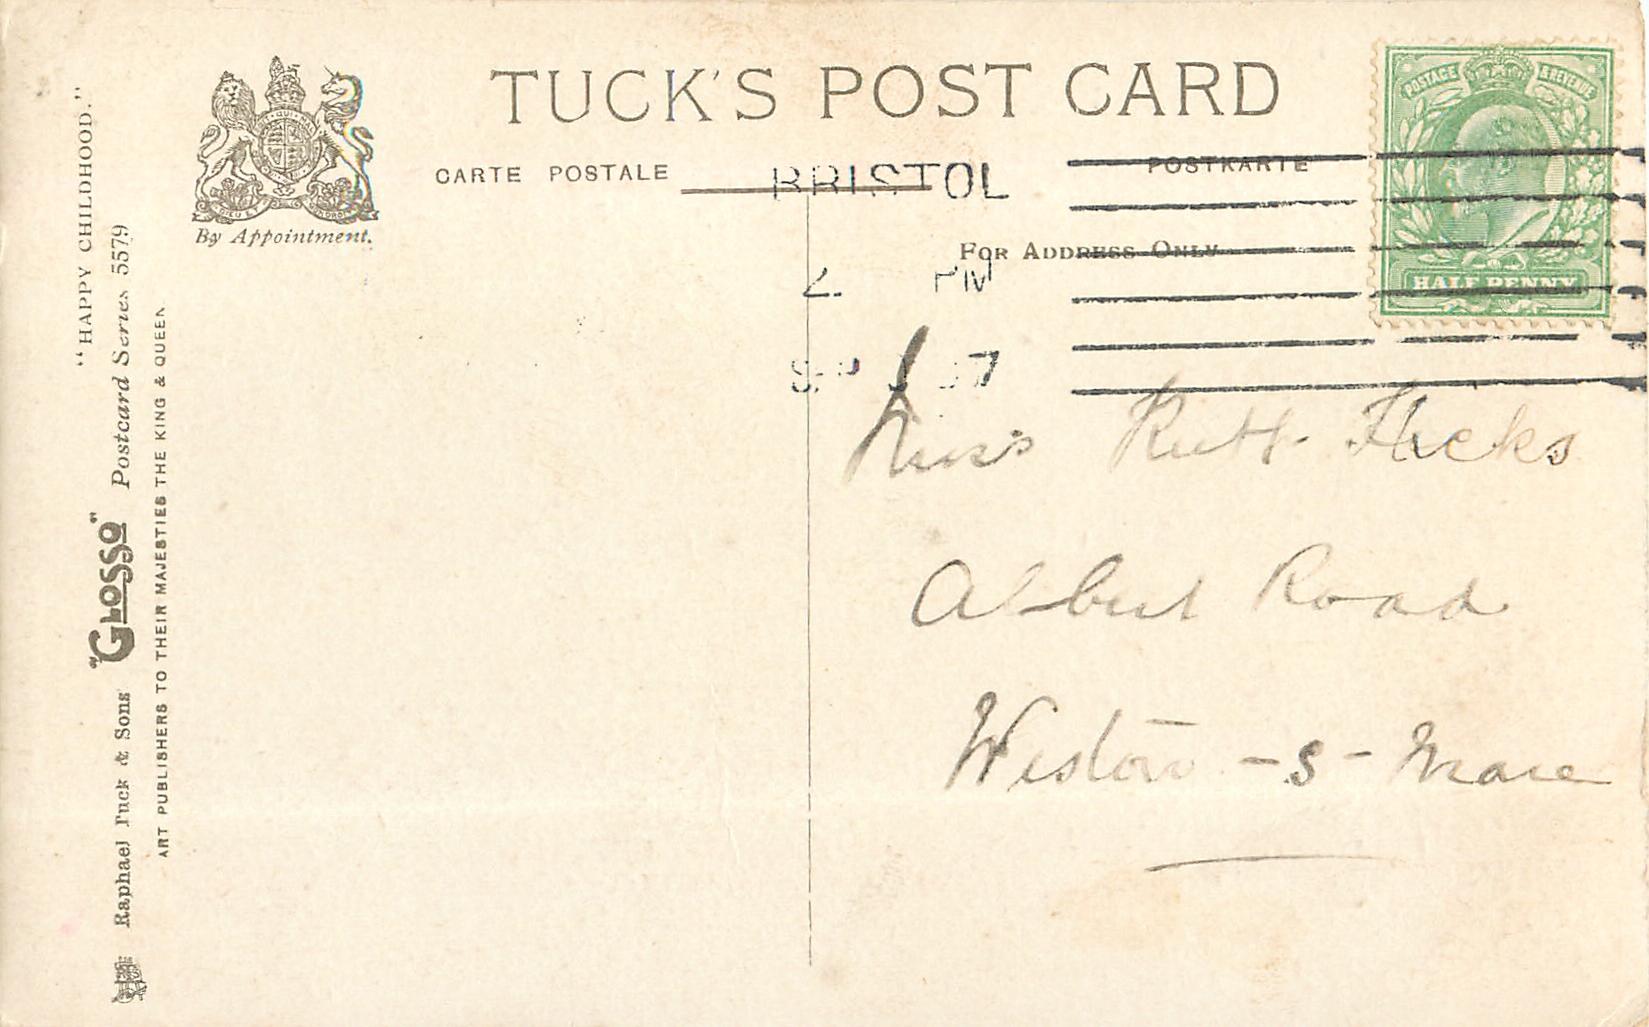 TUCK'S POST CARD
CARTE POSTALE
POSTKARTE
BRISTOL
FOR ADDRESS ONLY
PM
7
By Appointment.
POSTAGE & REVENUE
HALF PENNY
Miss Ruth Hicks
Albert Road
Weston-s-Mare
"HAPPY CHILDHOOD."
Raphael Tuck & Sons "GLOSSO" Postcard Series 5579
ART PUBLISHERS TO THEIR MAJESTIES THE KING & QUEEN